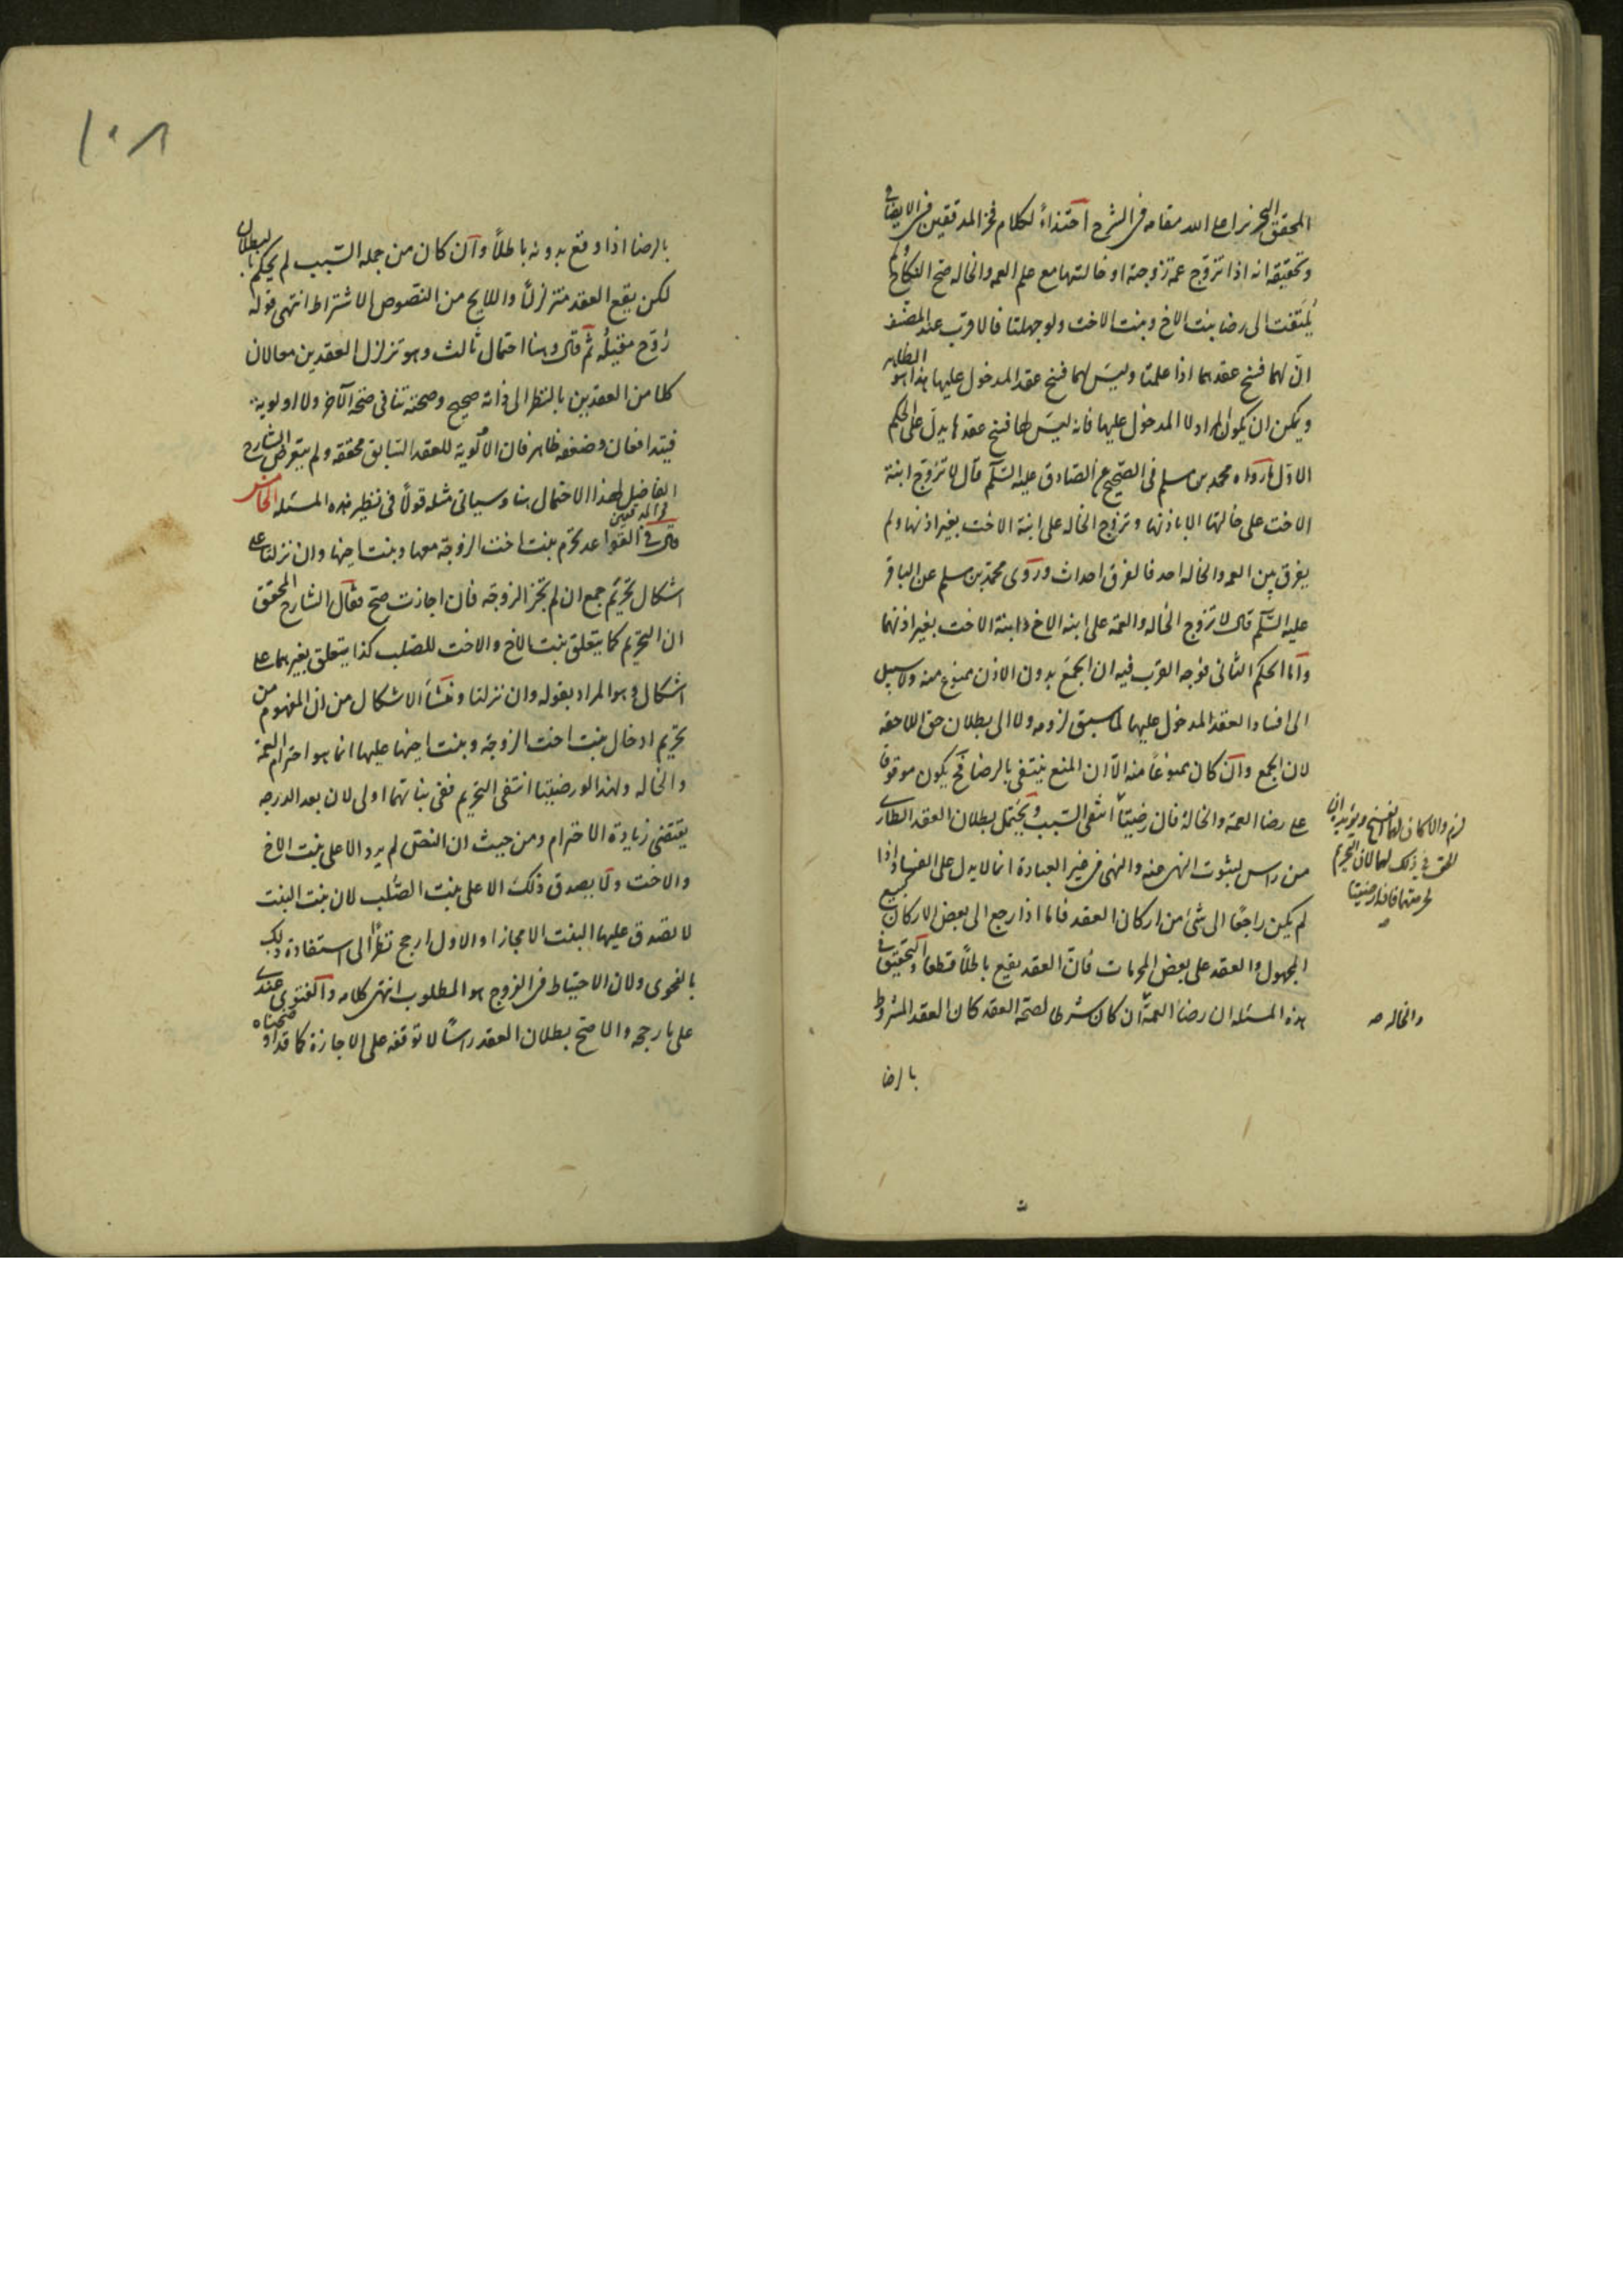 المحقق النحرير اعلى الله مقامه فى الشرح احتذاءً لكلام فخر المدققين فى الايضاح
وتحقيقه انه اذا تزوج عمة زوجته او خالتها مع علم العمه والخاله صح النكاح ولم
يلتفت الى رضا بنت الاخ وبنت الاخت ولو جهلتا فالاقرب عند المصنف
ان لهما فسخ عقدهما اذا علمتا وليس لهما فسخ عقد المدخول عليها هذا هو الظاهر
ويمكن ان يكون المراد لا المدخول عليها فانه ليس لها فسخ عقدها يدل على الحكم
الاول ما رواه محمد بن مسلم فى الصحيح عن الصادق عليه السلم قال لا تزوج ابنة
الاخت على خالتها الا باذنها وتزوج الخاله على ابنة الاخت بغير اذنها ولم
يفرق بين العمه والخاله احد فالفرق احداث وروى محمد بن مسلم عن الباقر
عليه السلم قال لا تزوج الخاله والعمه على ابنه الاخ وابنة الاخت بغير اذنهما
واما الحكم الثانى فوجه القرب فيه ان الجمع بدون الاذن ممنوع منه ولا سبيل
الى افساد العقد المدخول عليها لما سبق لزومه ولا الى بطلان حق اللاحقه
لان الجمع وان كان ممنوعاً منه الا ان المنع ينتفى بالرضا فح يكون موقوفا
على رضا العمة والخالة فان رضيتا انتفى السبب ويحتمل بطلان العقد الطارى
من راس لثبوت النهى عنه والنهى فى غير العبادة انما لا يدل على الفساد اذا
لم يكن راجعًا الى شئ من اركان العقد فاما اذا رجع الى بعض الاركان كبيع
المجهول والعقد على بعض المحرمات فان العقد يقع باطلاً قطعا والتحقيق فى
هذه المسئله ان رضا العمة ان كان شرطا لصحة العقد كان العقد المشروط
بالرضا
لزم والا كان لهما الفسخ ويؤيده ان
الحق فى ذلك لهما لان التحريم
لحرمتهما فاذا رضيتا
والخاله صه
١٠٨
بالرضا اذا وقع بدونه باطلاً وان كان من جملة السبب لم يحكم بالبطلان
لكن يقع العقد متزلزلاً واللايح من النصوص الاشتراط انتهى قوله
روّح مقيله ثم قال وهنا احتمال ثالث وهو تزلزل العقدين معا لان
كلا من العقدين بالنظر الى ذاته صحيح وصحته تنافى صحة الآخر ولا اولوية
فيتدافعان وضعفه ظاهر فان الاولوية للعقد السابق محققه ولم يتعرض الشارح
الفاضل لهذا الاحتمال هنا وسياتى مثله قولاً فى نظير هذه المسئله الخامس
قال فخر المدققين فى القواعد تحرم بنت اخت الزوجة معها وبنت اخيها وان نزلتا على
اشكال تحريم جمع ان لم تجز الزوجة فان اجازت صح فقال الشارح المحقق
ان التحريم كما يتعلق بنت الاخ والاخت للصلب كذا يتعلق بغيرهما على
اشكال وهو المراد بقوله وان نزلتا ومنشأ الاشكال من ان المفهوم من
تحريم ادخال بنت اخت الزوجة وبنت اخيها عليها انما هو احترام العمة
والخاله ولهذا لو رضيتا انتفى التحريم ففى بناتهما اولى لان بعد الدرجه
يقتضى زيادة الاحترام ومن حيث ان النص لم يرد الا على بنت الاخ
والاخت ولا يصدق ذلك الا على بنت الصلب لان بنت البنت
لا تصدق عليها البنت الا مجازا والاول ارجح نظرًا الى استفادة ذلك
بالفحوى ولان الاحتياط فى الفروج هو المطلوب انتهى كلامه والفتوى عندى
على ما رجحه والاصح بطلان العقد راسًا لا توقفه على الاجازة كما قد اوضحناه